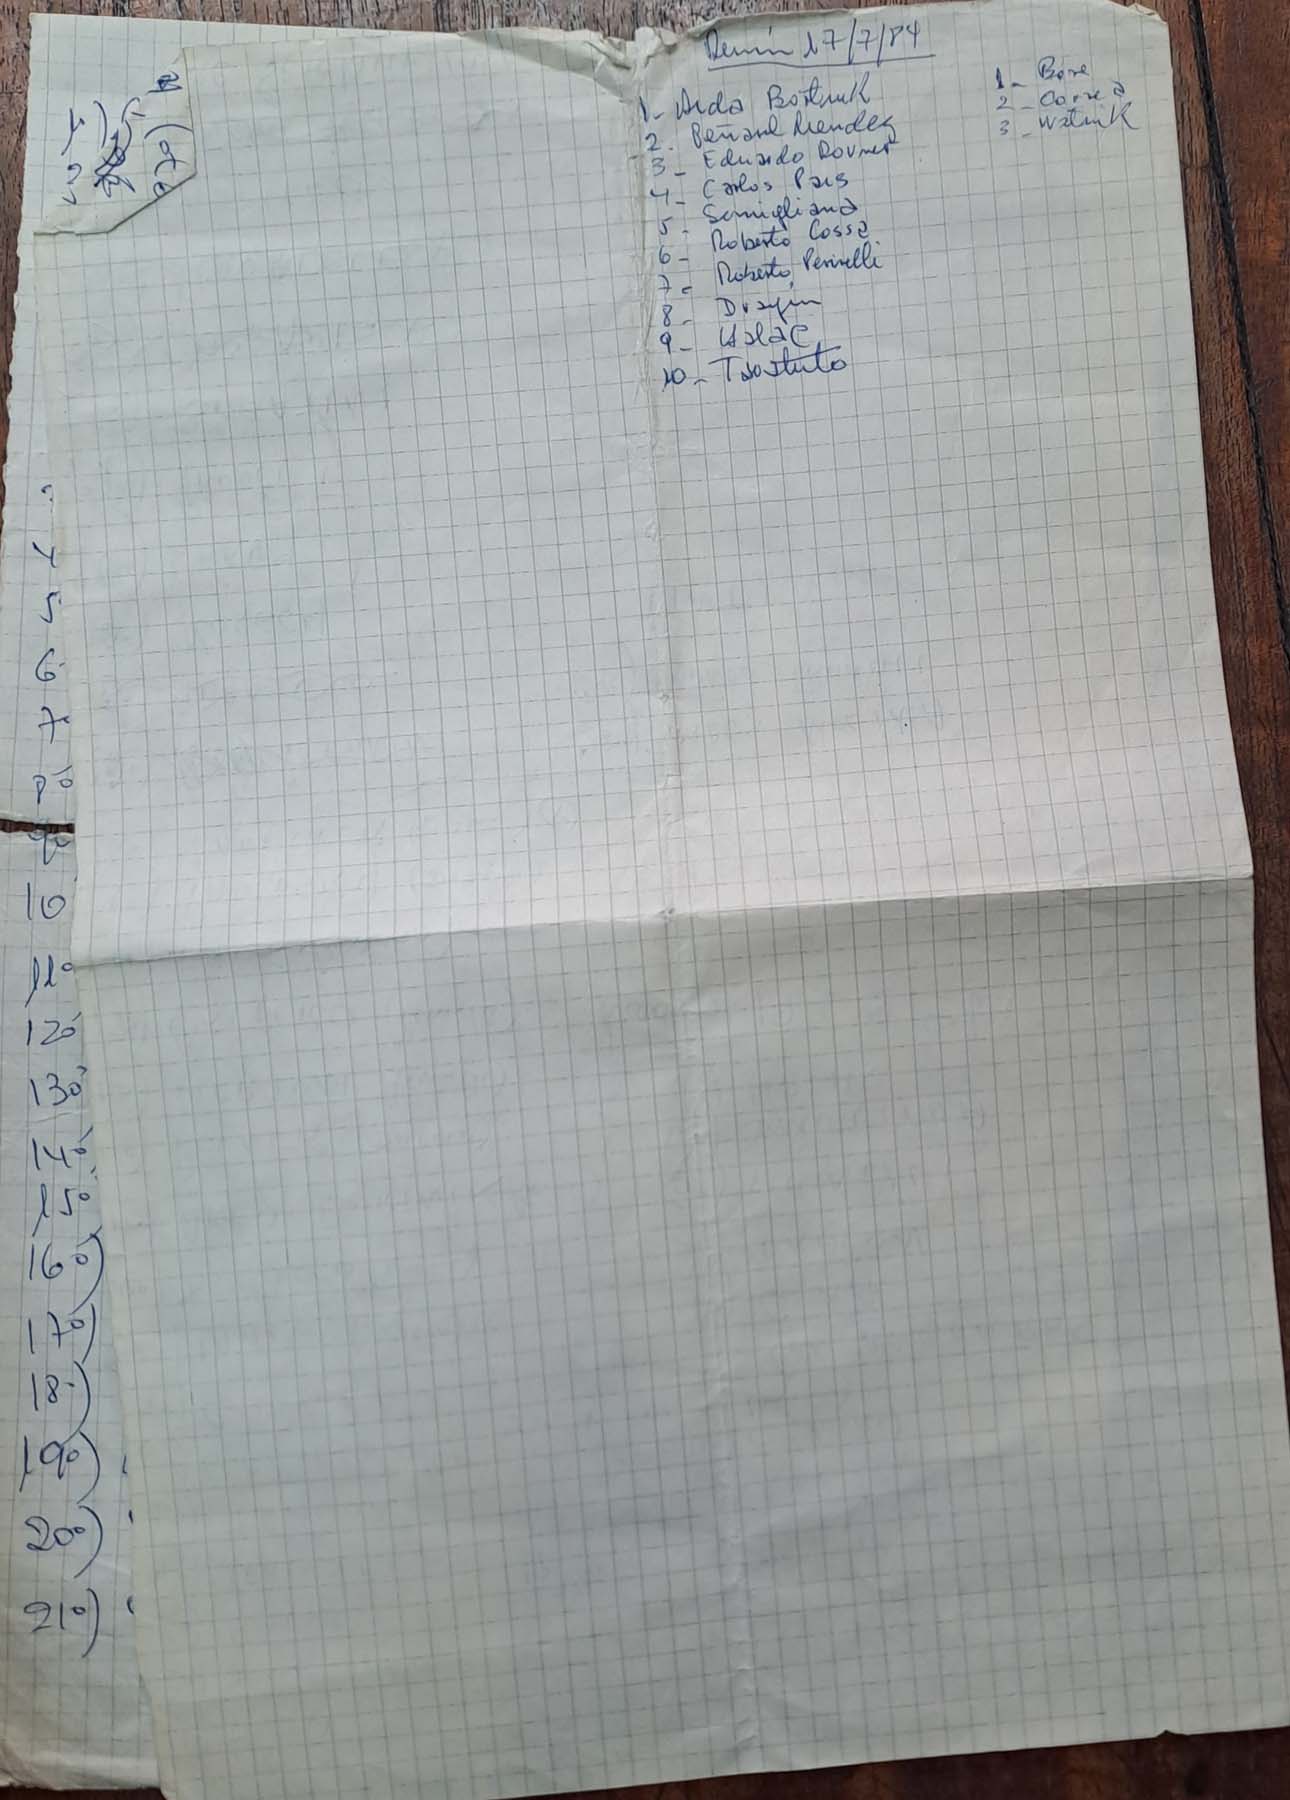 Reunión 17/7/84
1- Aida Bortnik
2. Peñarol Mendez
3- Eduardo Rovner
4- Carlos Pais
5- Somigliana
6- Roberto Cossa
7- Roberto Perinelli
8- Dragún
9- Halac
10- Taratuto
1- Bove
2- Correa
3-
4
5
6
7
8º
9º
10
11º
12º
13º
14º
15º
16º)
17º)
18º)
19º)
20º)
21º)